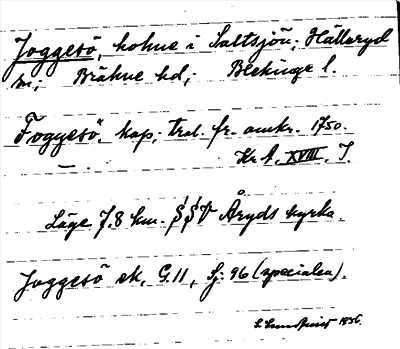 Joggesö, holme i Saltsjön; Hällaryd
sn; Bräkne hd; Blekinge l.
Foggesö, kap; tral. fr. omkr. 1750.
Kr. A. XVIII. I.
Läge 7,8 km. Åryds kyrka.
Joggesö ek. G. 11, Sj. 96 (specialen).